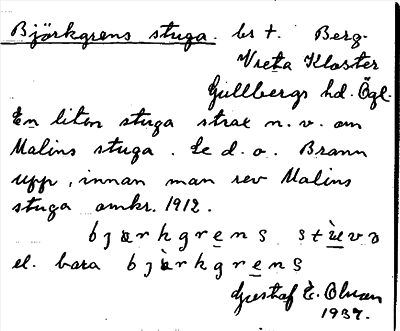 Björkgrens stuga. bs t. Berg.
Vreta Kloster
Gullbergs hd. Ögl.
En liten stuga strax n. v. om
Malins stuga. Se d. o. Brann
upp, innan man rev Malins
stuga omkr. 1912.
bjœrkgrens stuva
el. bara bjœrkgrens
Gustaf E. Olman
1937.